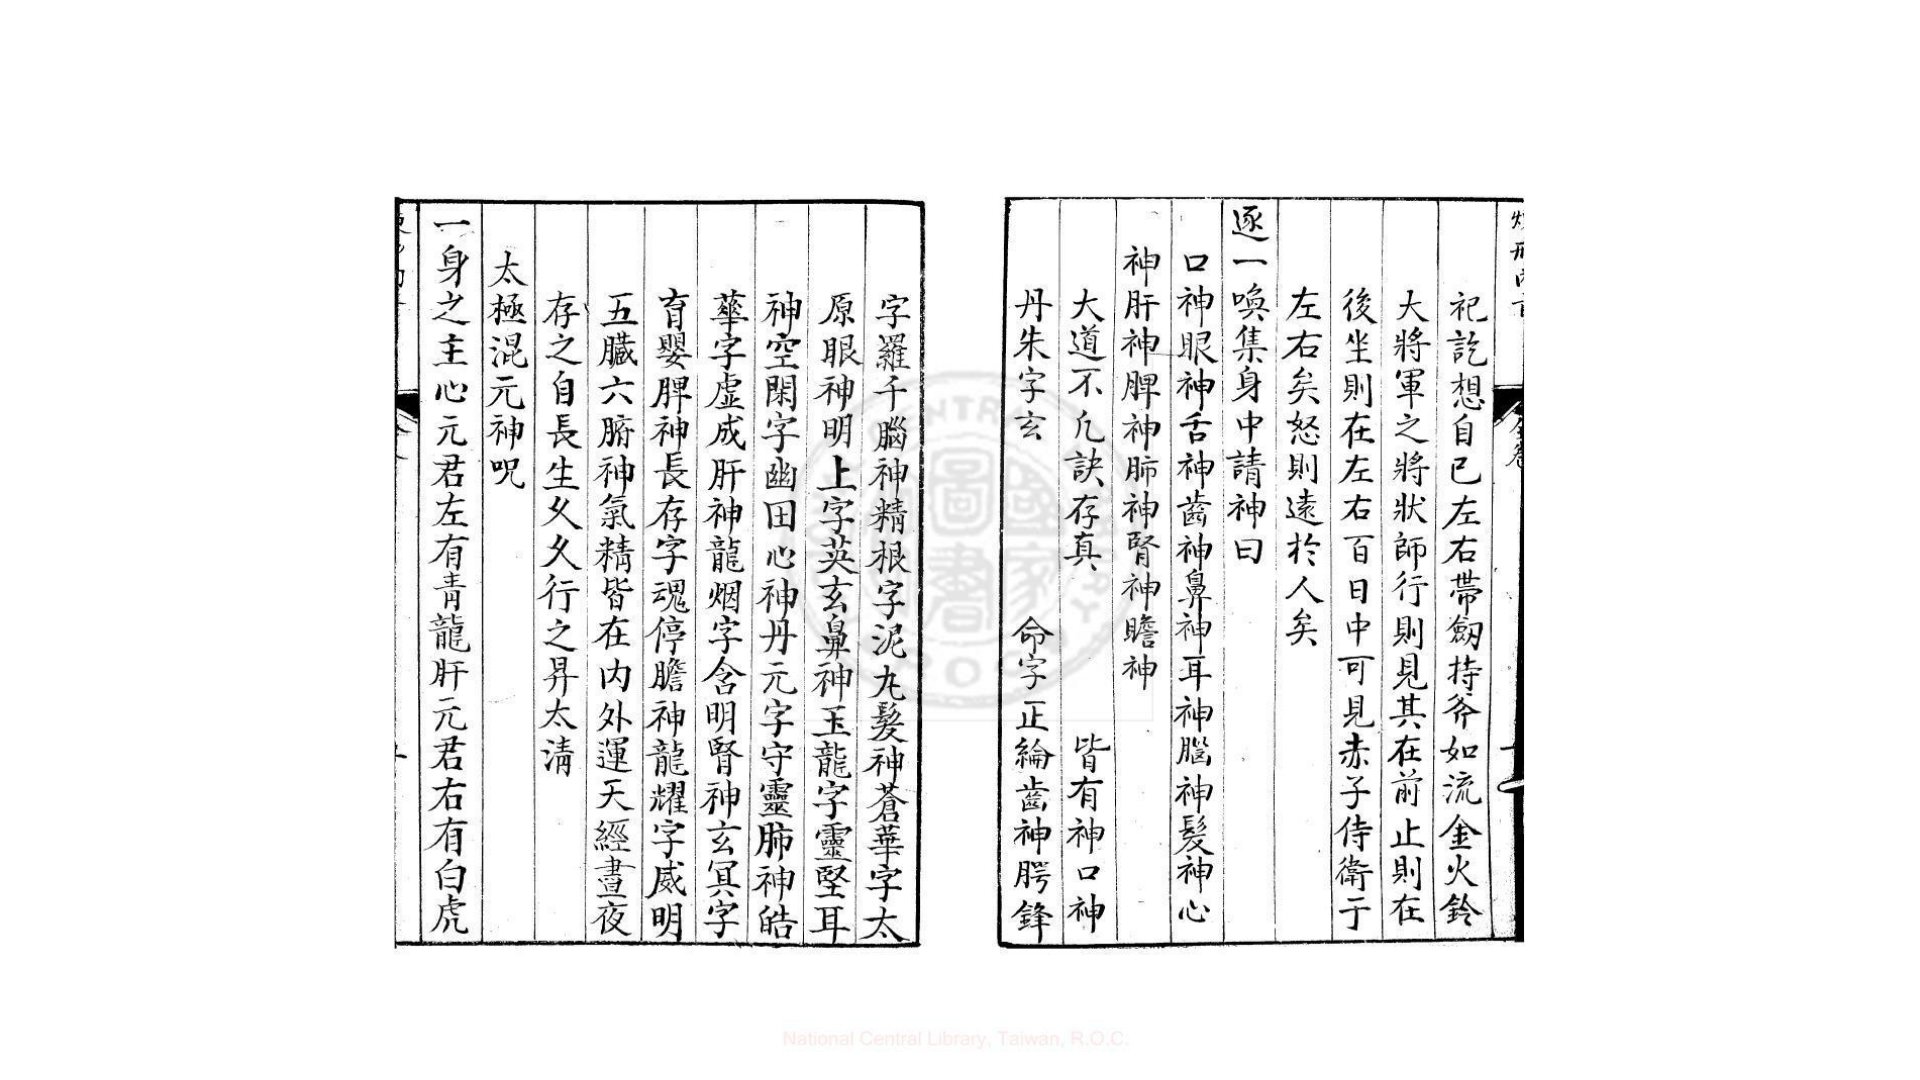 祀訖想自已左右帶劔持斧如流金火鈴
大將軍之將狀師行則見其在前止則在
後坐則在左右百日中可見赤子侍衛于
左右矣怒則遠於人矣
逐一喚集身中請神曰
口神眼神舌神齒神鼻神耳神腦神髮神心
神肝神脾神肺神腎神瞻神
大道不凢訣存真 皆有神口神
丹朱字玄 命字正綸齒神腭鋒
字羅千腦神精根字泥丸髮神蒼華字太
原眼神明上字英玄鼻神玉龍字靈堅耳
神空閑字幽田心神丹元字守靈肺神皓
華字虛成肝神龍烟字含明腎神玄冥字
育嬰脾神長存字魂停膽神龍耀字威明
五臟六腑神氣精皆在内外運天經晝夜
存之自長生久久行之昇太清
太極混元神呪
一身之主心元君左有青龍肝元君右有白虎
National Central Library, Taiwan, R.O.C.